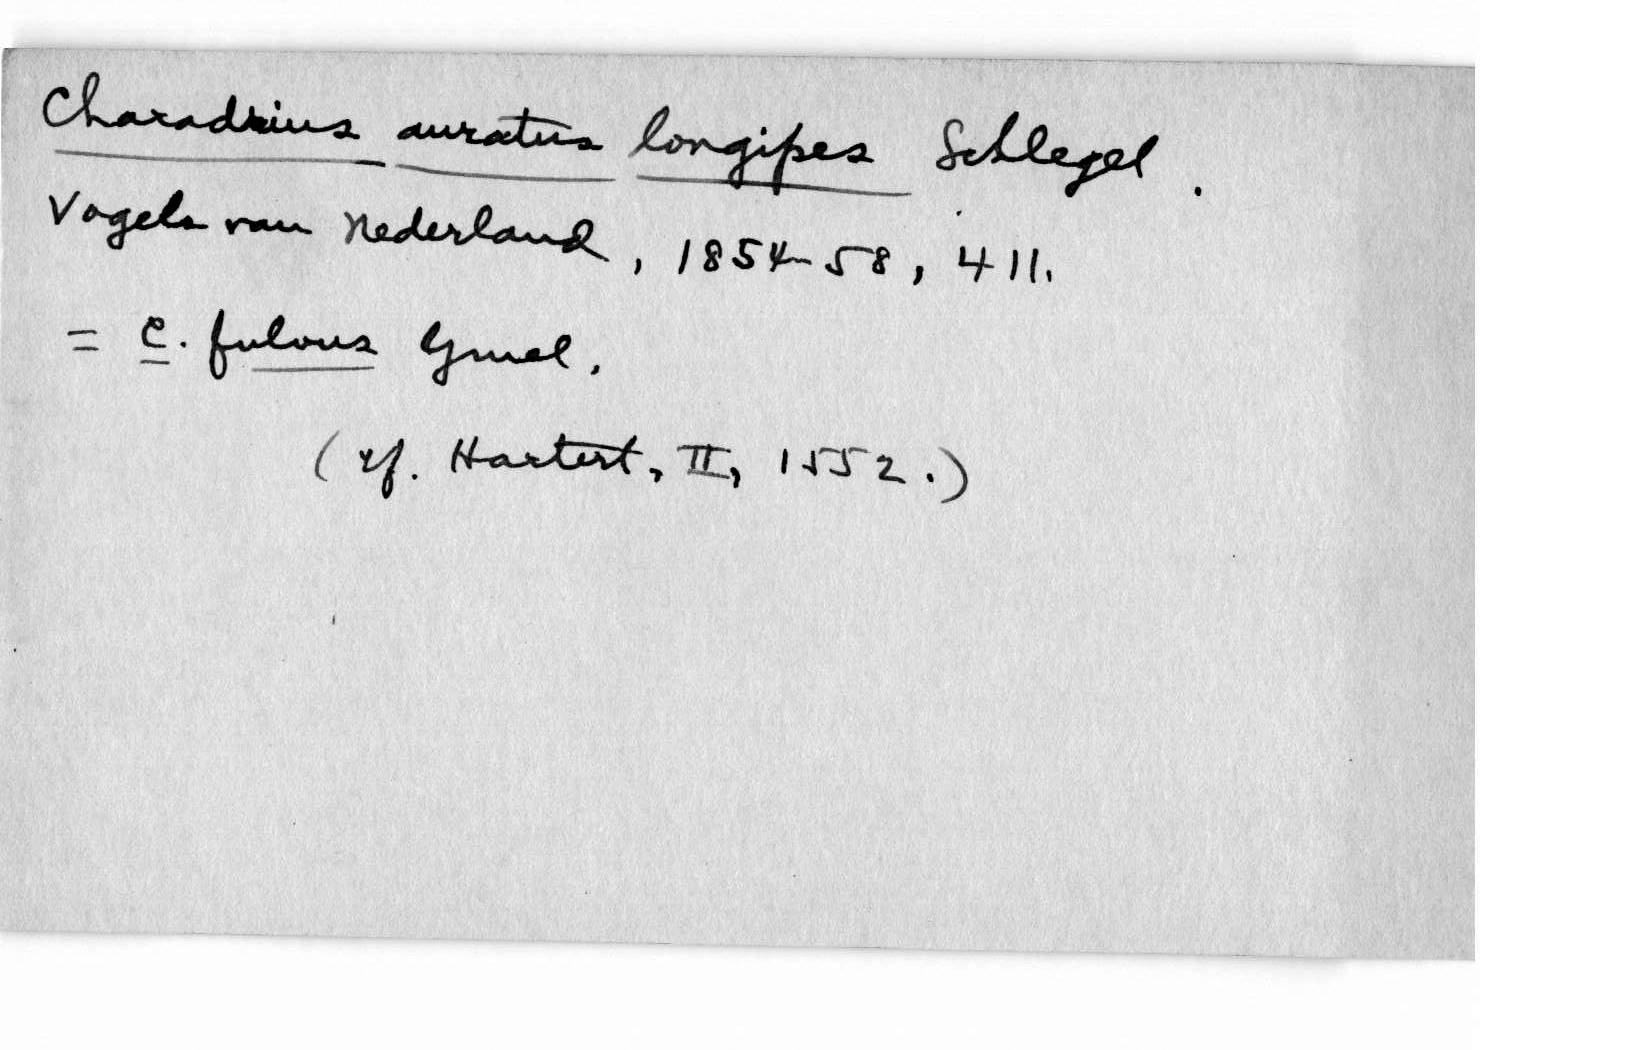 Charadrius auratus longipes Schlegel.
Vogels van Nederland, 1854-58, 411.
= C. fulvus Gmel.
(cf. Hartert, II, 1552.)